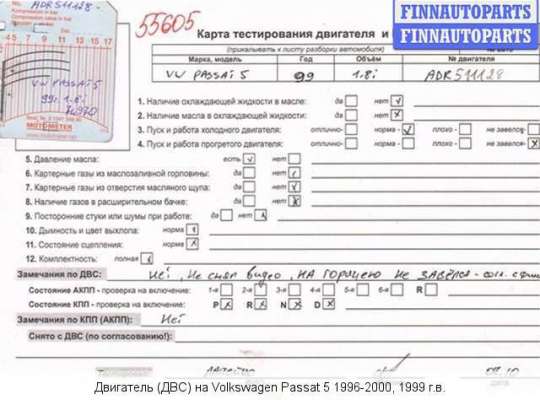 ADR511128
55605
FINNAUTOPARTS
FINNAUTOPARTS
Карта тестирования двигателя и
(прикалывать к листу разборки автомобиля)
Марка, модель Год Объём № двигателя
VW PASSAT 5 99 1.8i ADR511128
45 6 7 8 9 10 11 13 15 17
VW PASSAT 5
99г. 1.8i
MOTOMETER
1. Наличие охлаждающей жидкости в масле: да нет
2. Наличие масла в охлаждающей жидкости: да нет
3. Пуск и работа холодного двигателя: отлично- норма- плохо- не завелся-
4. Пуск и работа прогретого двигателя: отлично- норма- плохо- не завелся-
5. Давление масла: есть нет
6. Картерные газы из маслозаливной горловины: да нет
7. Картерные газы из отверстия масляного щупа: да нет
8. Наличие газов в расширительном бачке: да нет
9. Посторонние стуки или шумы при работе: да нет
10. Дымность и цвет выхлопа: норма
11. Состояние сцепления: норма
12. Комплектность: полная
Замечания по ДВС: Не снял видео, на горячую не завёлся-
Состояние АКПП - проверка на включение: 1-я 2-я 3-я 4-я 5-я 6-я R
Состояние КПП - проверка на включение: P R N D
Замечания по КПП (АКПП): Нет
Снято с ДВС (по согласованию!):
Двигатель (ДВС) на Volkswagen Passat 5 1996-2000, 1999 г.в.